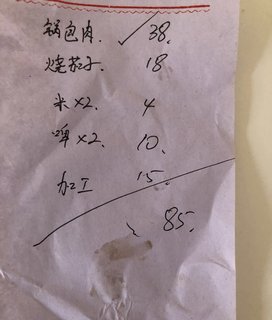 锅包肉. ✓ 38.
烧茄子 18
米×2. 4
啤×2. 10.
加工 15.
85.